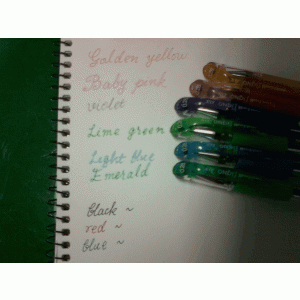 Golden yellow
Baby pink
violet
Lime green
Light blue
Emerald
black ~
red ~
blue ~